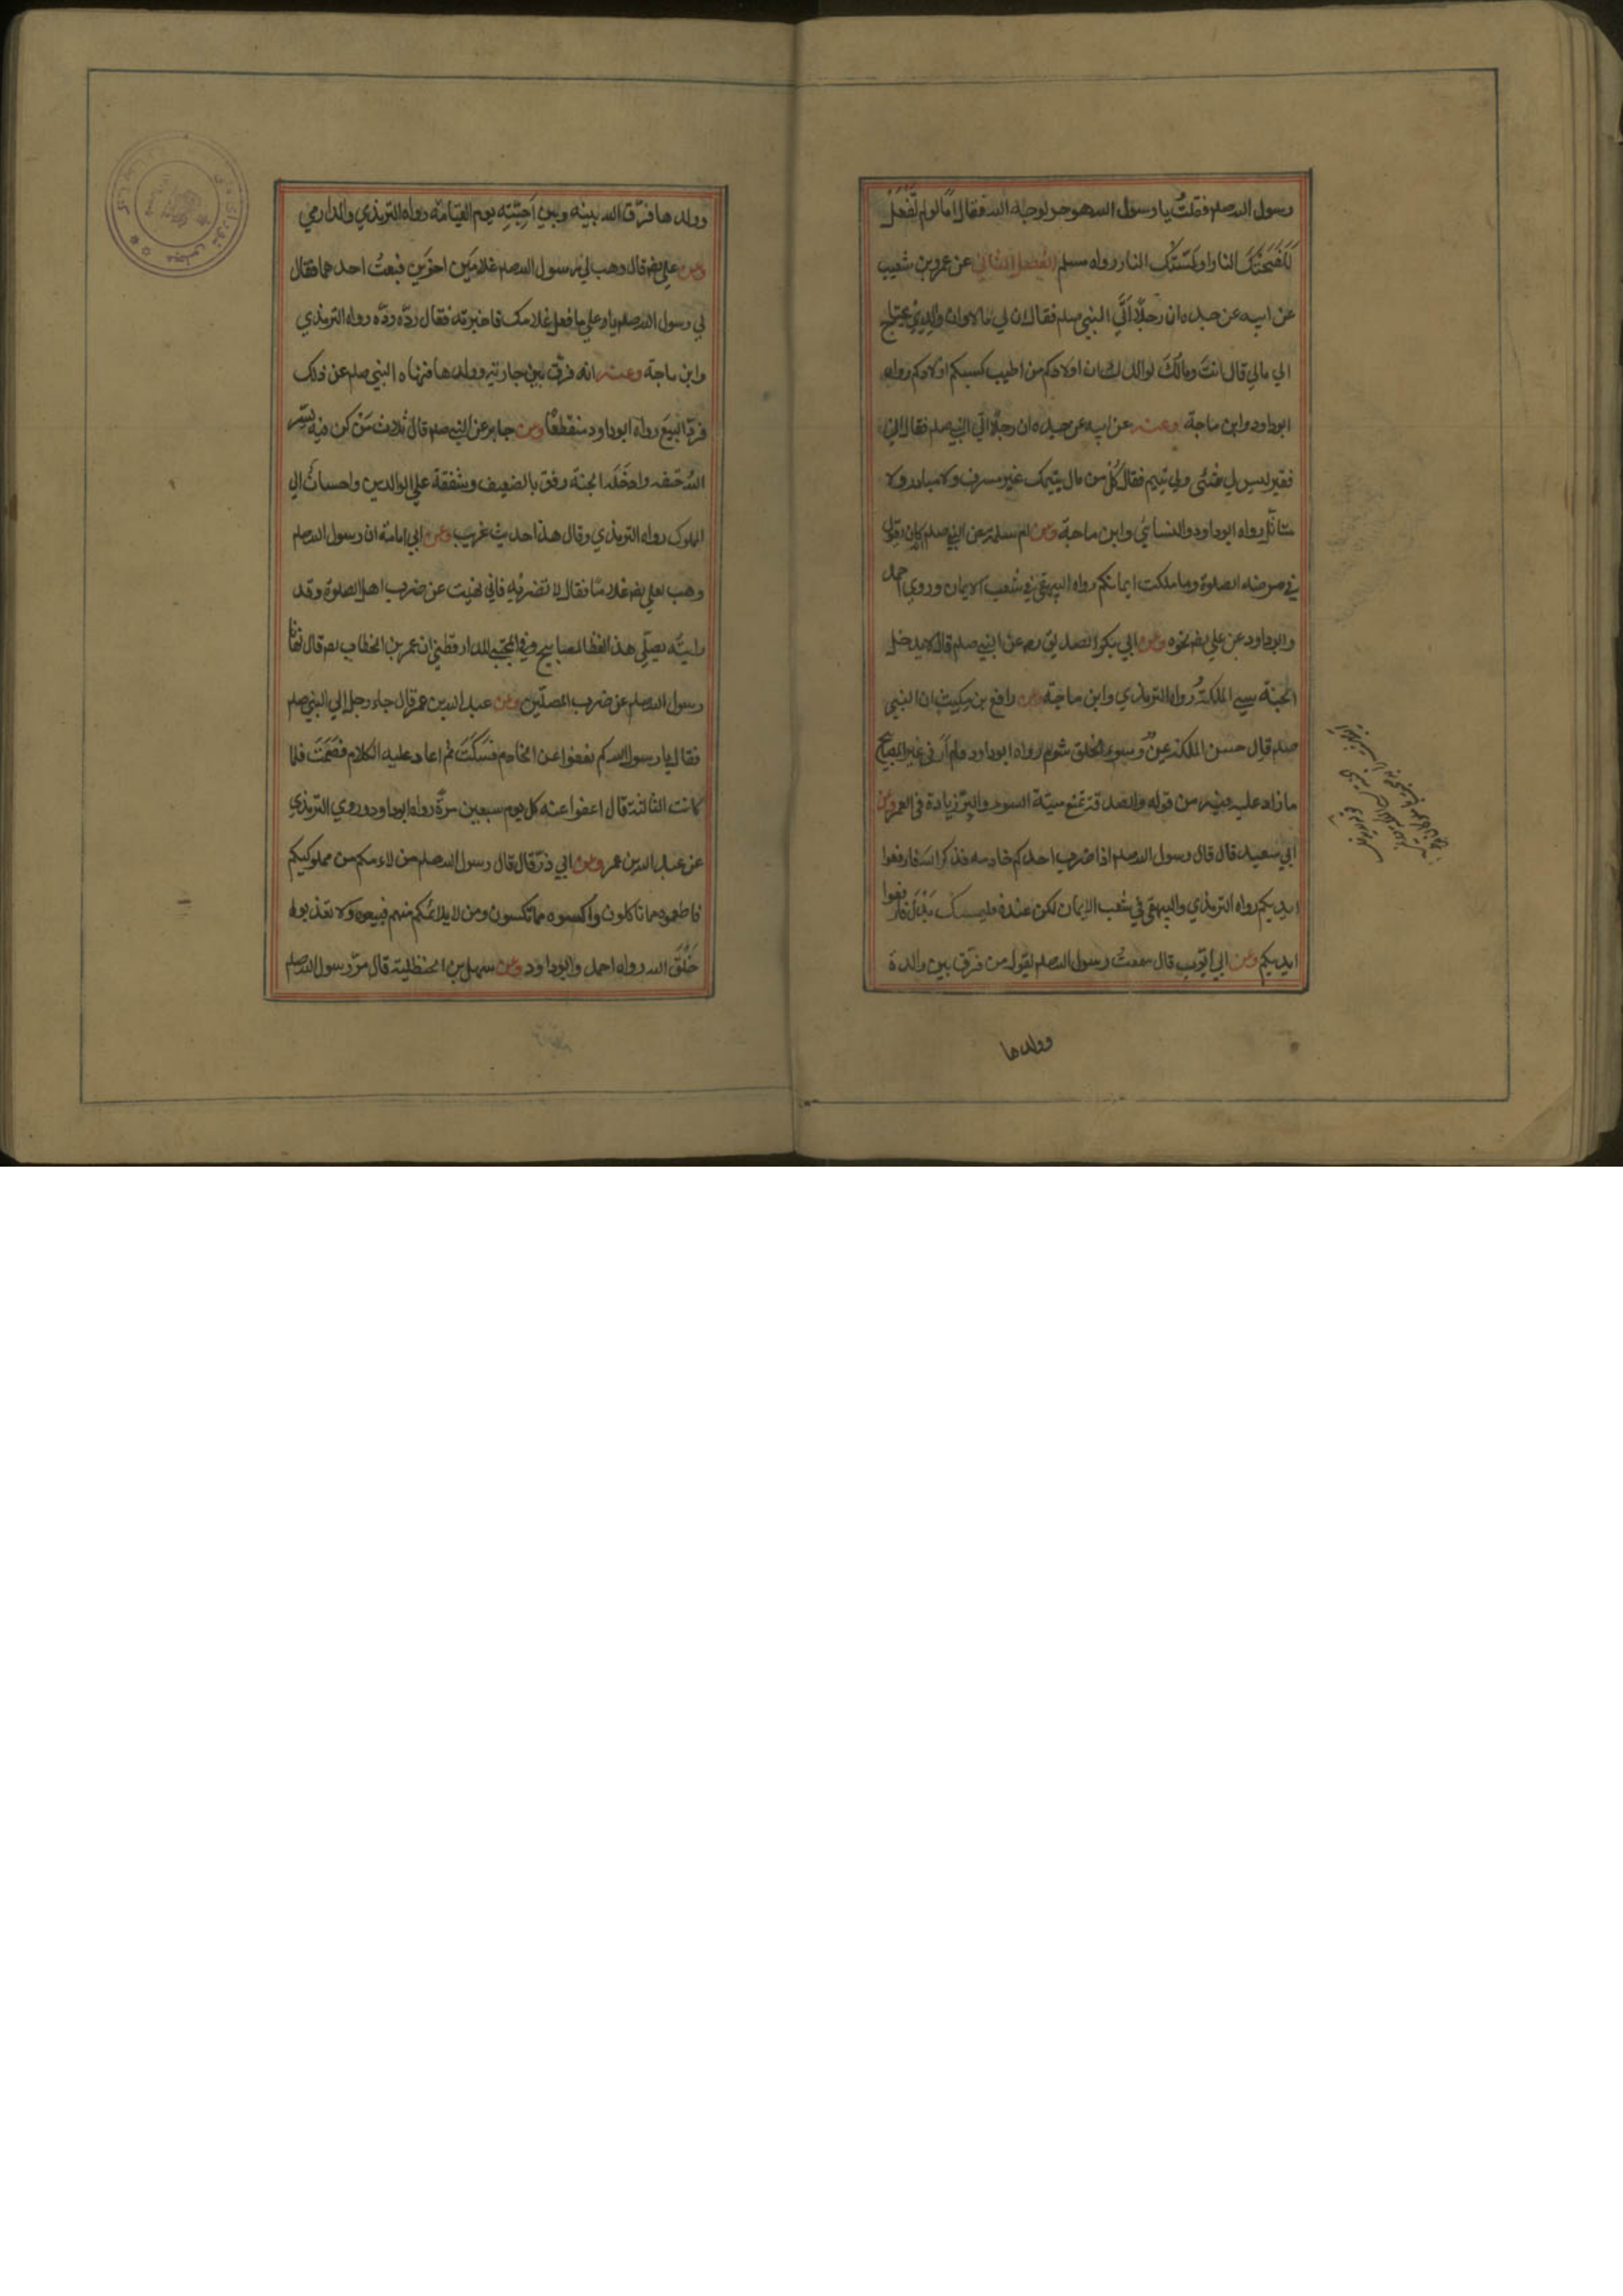 رسول الله صلعم فقلتُ يا رسول الله هو حر لوجه الله فقال اما لو لم تَفْعَلْ
لَلَفَحَتْكَ النار او لَمَسَّتْكَ النار رواه مسلم الفصل الثاني عن عمرو بن شعيب
عن ابيه عن جده ان رجلًا اَتَى النبي صلعم فقال ان لي مالا وان والدي يحتاج
الي مالي قال انتَ ومالُكَ لوالدك ان اولادكم من اطيب كسبكم اولادكم رواه
ابوداود وابن ماجة وعنه عن ابيه عن جده ان رجلًا اتي النبي صلعم فقال اني
فقير ليس لي شئي ولي يتيم فقال كُلْ من مال يتيمك غير مسرف ولا مبادر ولا
متاثّل رواه ابوداود والنسائي وابن ماجة وعن ام سلمة عن النبي صلعم كان يقول
في مرضه الصلوة وما ملكت ايمانكم رواه البيهقي في شعب الايمان وروي احمد
وابوداود عن علي رضه نحوه وعن ابي بكر الصديق رضه عن النبي صلعم قال لا يدخل
الجنة سيي الملكة رواه الترمذي وابن ماجة وعن رافع بن مكيث ان النبي
صلعم قال حسن الملكة يمنٌ وسوء الخلق شوم رواه ابوداود ولم اَرَ في غير المصابيح
ما زاد عليه فيه من قوله والصدقة تمنع ميتة السوء والبِرّ زيادة في العمر وعن
ابي سعيد قال قال رسول الله صلعم اذا ضرب احدكم خادمه فذكر الله فارفعوا
ايديكم رواه الترمذي والبيهقي في شعب الايمان لكن عنده فليمسك بَدَلَ فارفعوا
ايديكم وعن ابي ايّوب قال سمعتُ رسول الله صلعم يقول من فرّق بين والدة
وولدها
وولدها فرّق الله بينه وبين اَحِبَّتِه يوم القيامة رواه الترمذي والدارمي
وعن علي رضه قال وهب لي رسول الله صلعم غلامَين اخوَين فبعتُ احدهما فقال
لي رسول الله صلعم يا علي ما فعل غلامك فاخبرته فقال ردّه ردّه رواه الترمذي
وابن ماجة وعنه انه فرّق بين جارية وولدها فنهاه النبي صلعم عن ذلك
فردّ البيعَ رواه ابوداود منقطعًا وعن جابر عن النبي صلعم قال ثلاث مَنْ كن فيه يسّر
اللهُ حتفه وادخَلَه الجنة رفق بالضعيف وشفقة علي الوالدين واحسان الي
المملوك رواه الترمذي وقال هذا حديث غريب وعن ابي امامة ان رسول الله صلعم
وهب لعلي رضه غلامًا فقال لا تضربه فاني نهيت عن ضرب اهل الصلوة وقد
رايتُه يصلّي هذا لفظ المصابيح وفي المجتبي للدارقطني ان عمر بن الخطاب رضه قال نهانا
رسول الله صلعم عن ضرب المصلّين وعن عبد الله بن عمر قال جاء رجل الي النبي صلعم
فقال يا رسول الله كم نعفوا عن الخادم فسَكَتَ ثم اعاد عليه الكلام فصَمَتَ فلما
كانت الثالثة قال اعفوا عنه كل يوم سبعين مرّة رواه ابوداود وروي الترمذي
عن عبد الله بن عمر وعن ابي ذرّ قال قال رسول الله صلعم من لاءمكم من مملوكيكم
فاطعموه مما تاكلون واكسوه مما تكسون ومن لا يلائمكم منهم فبيعوه ولا تعذبوا
خَلْقَ الله رواه احمد وابوداود وعن سهل بن الحنظلية قال مرّ رسول الله صلعم